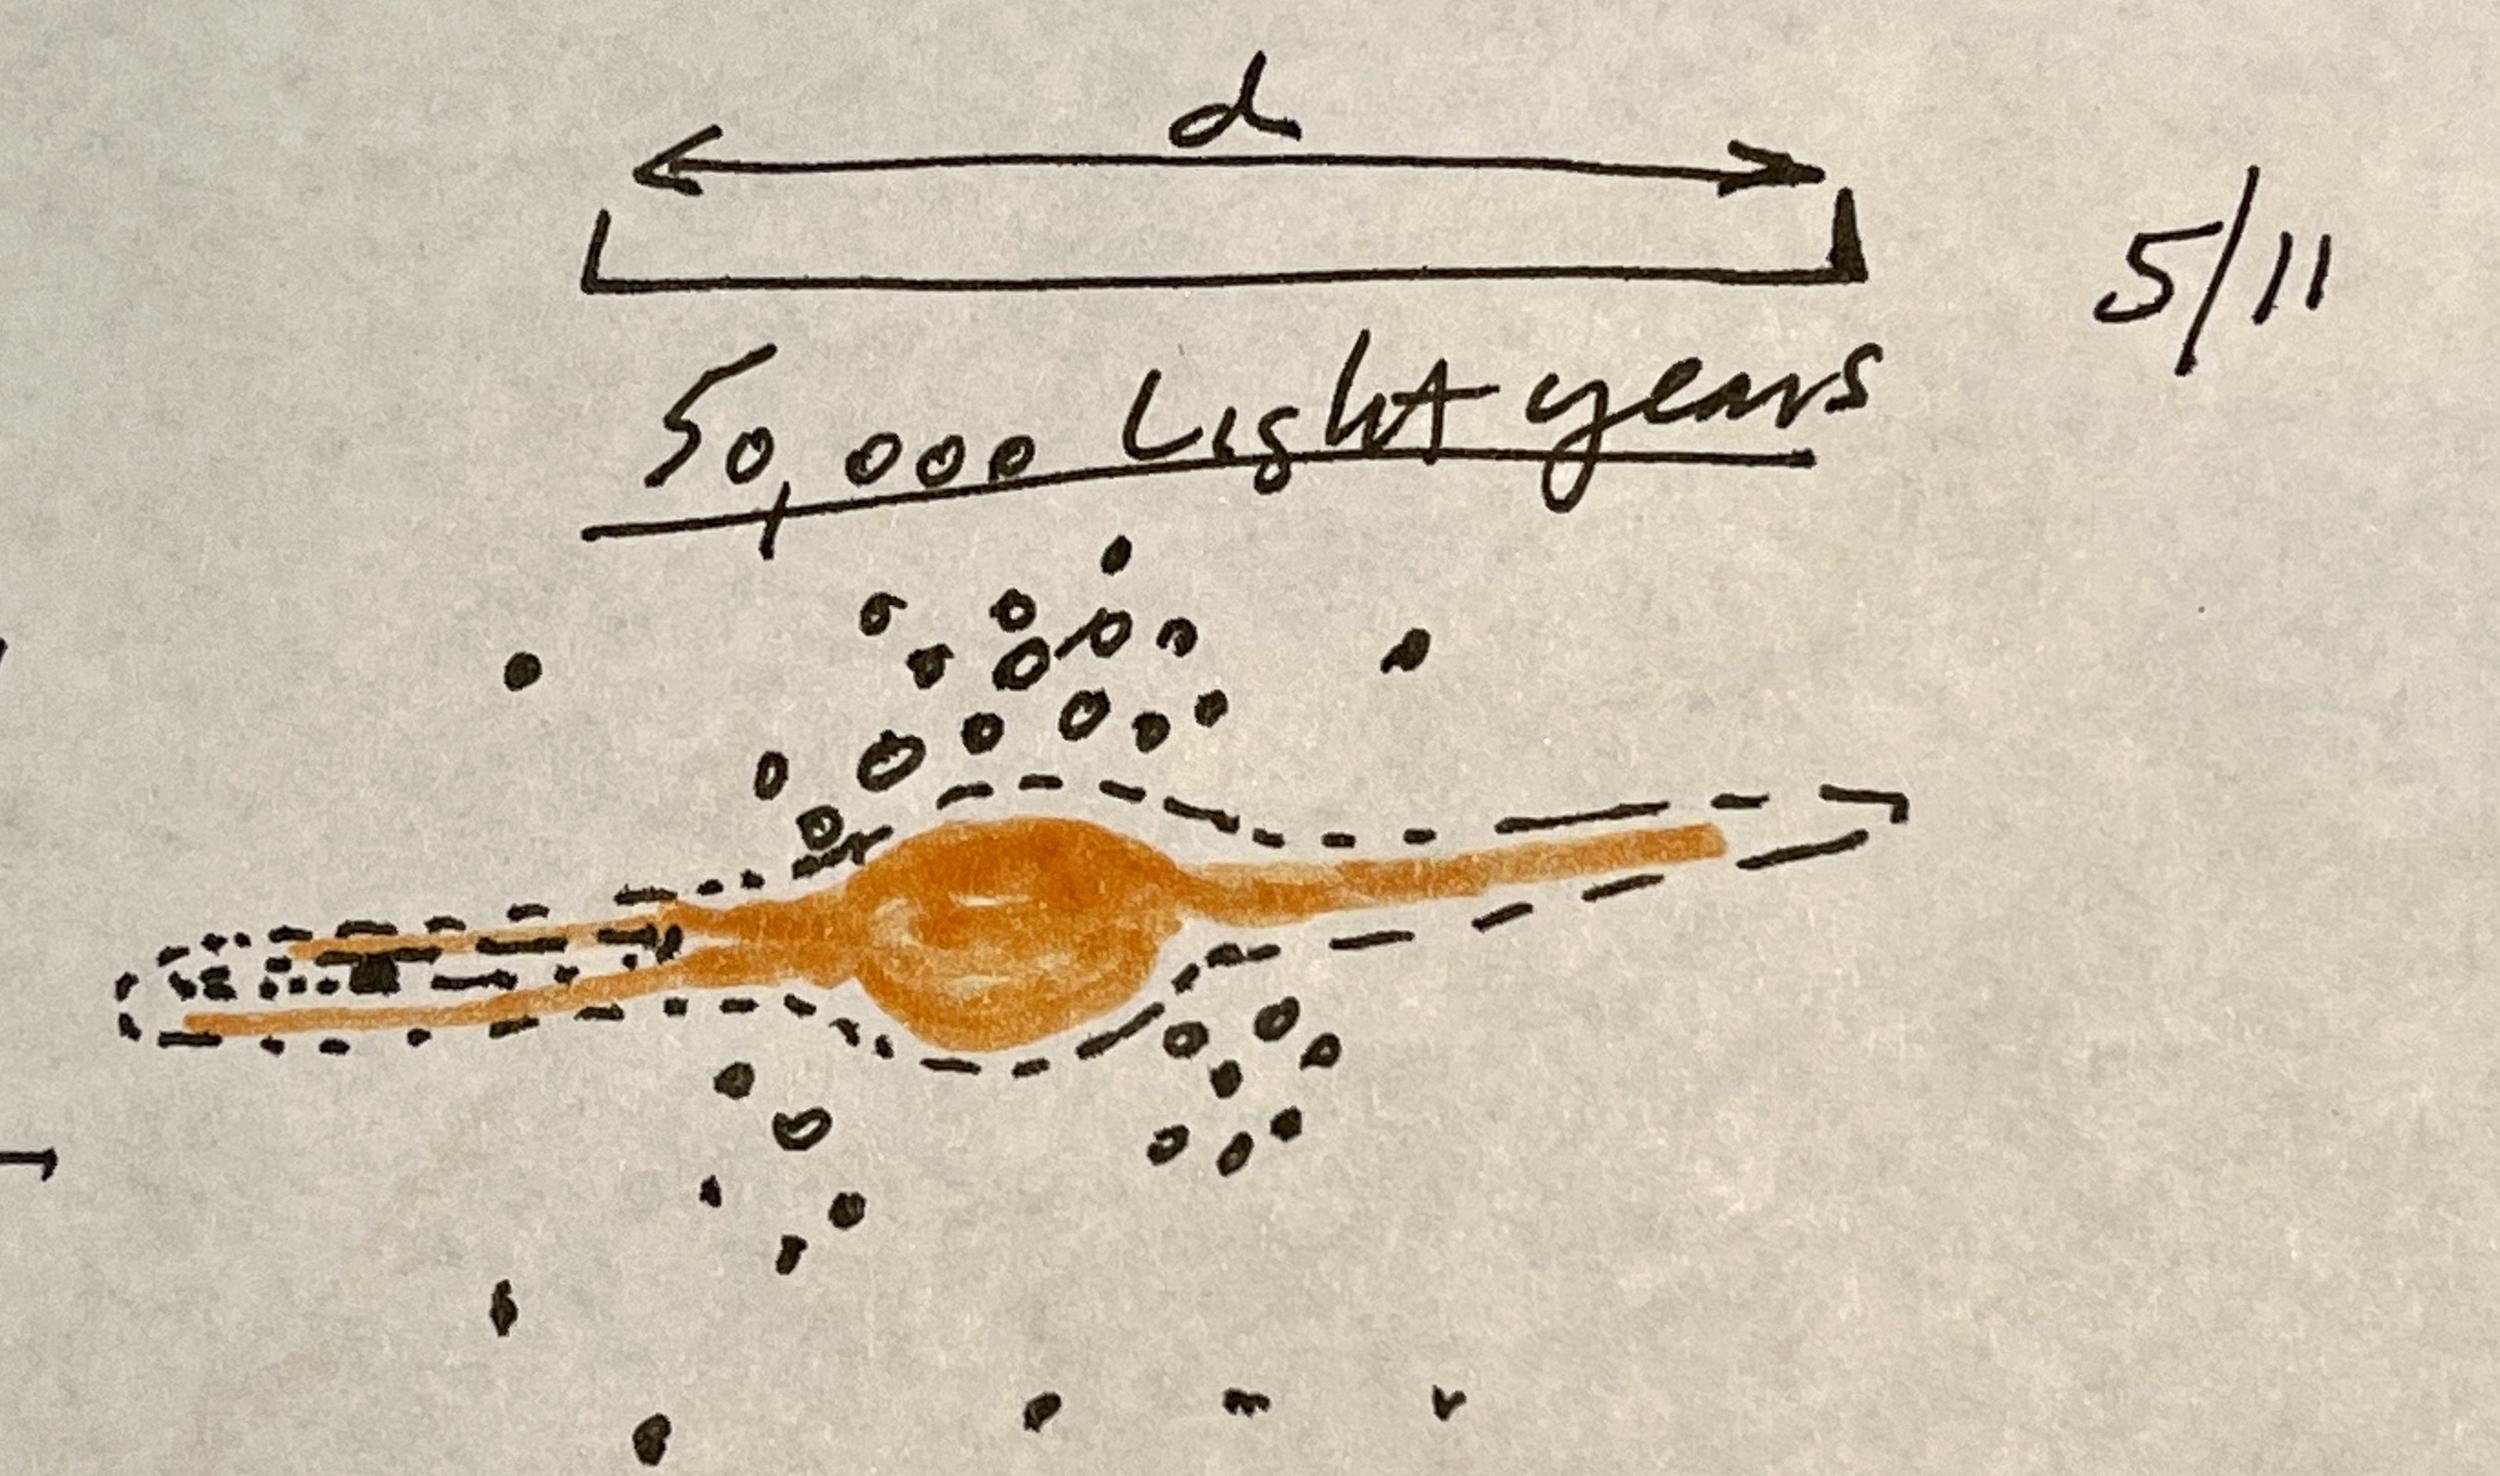 d
5/11
50,000 Light years